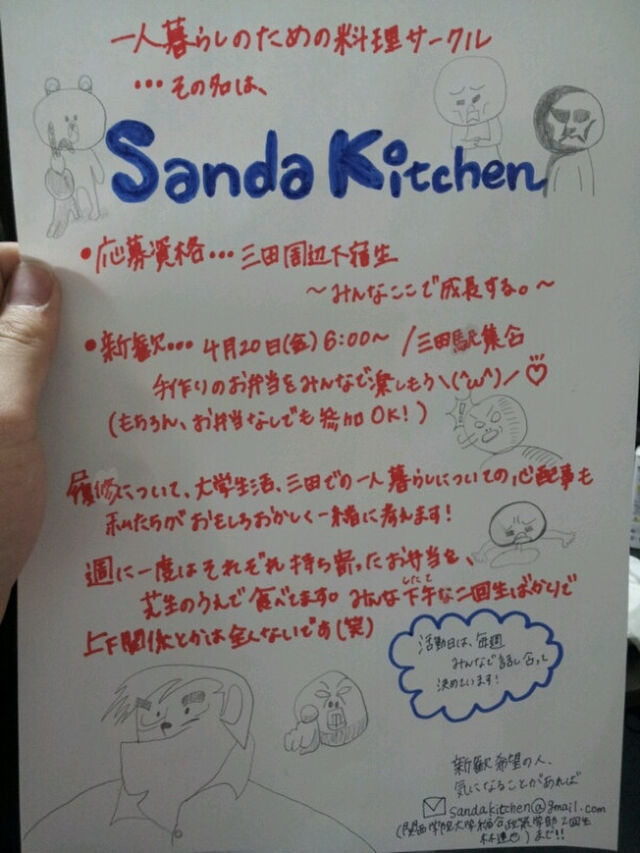 一人暮らしのための料理サークル
…その名は、
Sanda Kitchen
●応募資格… 三田周辺下宿生
～みんなここで成長する。～
●新歓… 4月20日(金) 6:00～ /三田駅集合
手作りのお弁当をみんなで楽しもう＼(^ω^)／♡
(もちろん、お弁当なしでも参加OK!)
履修について、大学生活、三田での一人暮らしについての心配事も
私たちがおもしろおかしく一緒に考えます!
週に一度はそれぞれ持ち寄ったお弁当を、
芝生のうえで食べてます。みんな下手な二回生ばかりで
したて
上下関係とかは全くないです(笑)
活動日は、毎週
みんなで話し合って
決めています!
新歓希望の人、
気になることがあれば
sandakitchen@gmail.com
(関西学院大学総合政策学部2回生
まで!!